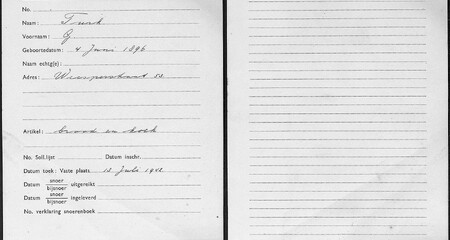 No.
Naam: Turk
Voornaam: G
Geboortedatum: 4 Juni 1896
Naam echtg(e):
Adres: Weesperstraat 52
Artikel: brood en koek
No. Soll.lijst Datum inschr.
Datum toek: Vaste plaats 15 Juli 1942
Datum snoer
bijsnoer uitgereikt
Datum snoer
bijsnoer ingeleverd
No. verklaring snoerenboek